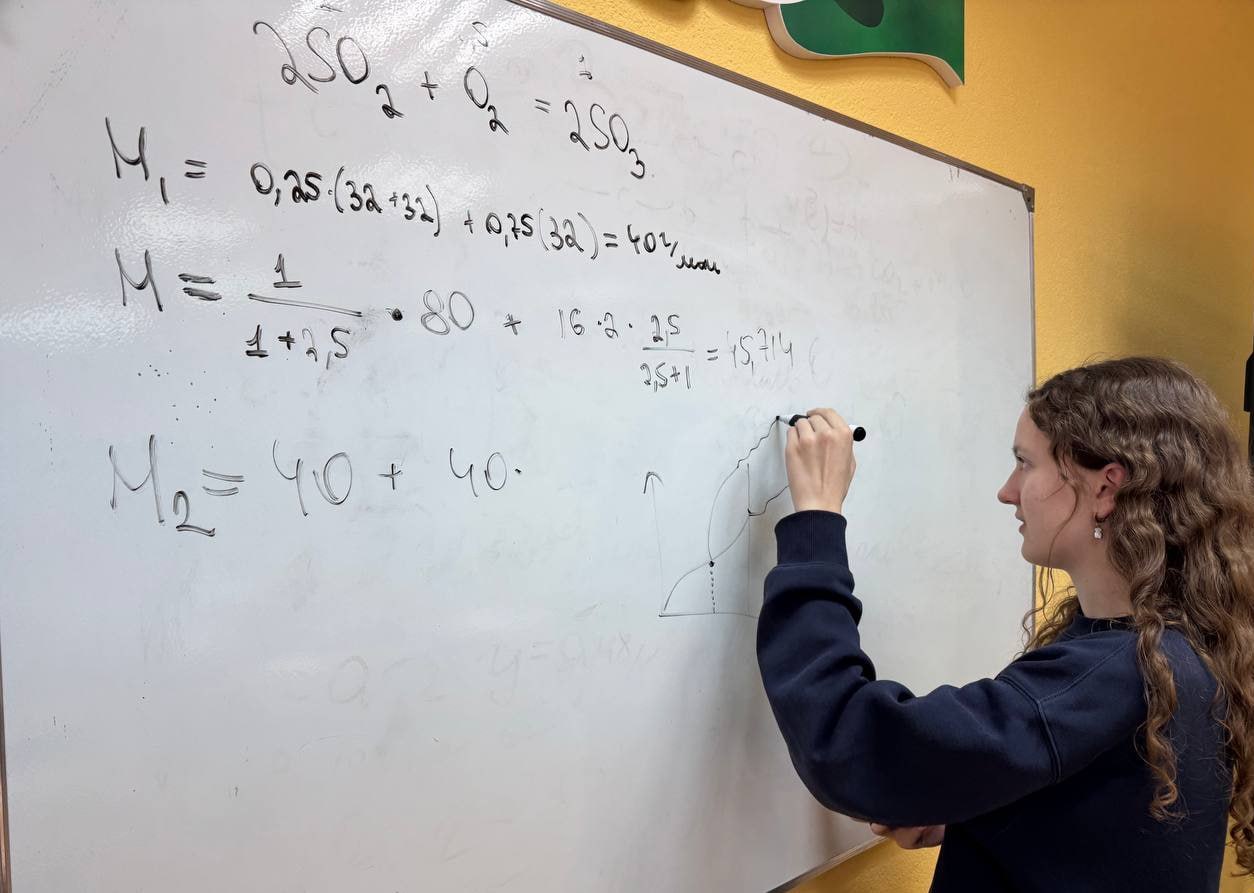 2SO₂ + O₂ = 2SO₃
M₁ = 0,25·(32+32) + 0,75(32) = 40 г/моль
M = 1/(1+2,5) · 80 + 16·2· 2,5/(2,5+1) = 45,714
M₂ = 40 + 40·